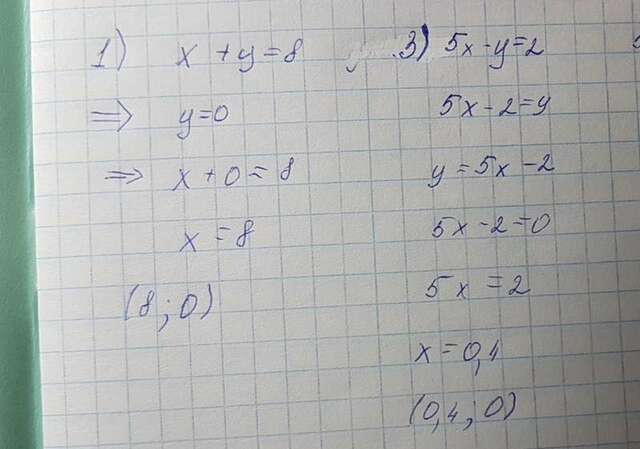 1) x + y = 8
⇒ y = 0
⇒ x + 0 = 8
x = 8
(8; 0)
3) 5x - y = 2
5x - 2 = y
y = 5x - 2
5x - 2 = 0
5x = 2
x = 0,4
(0,4; 0)